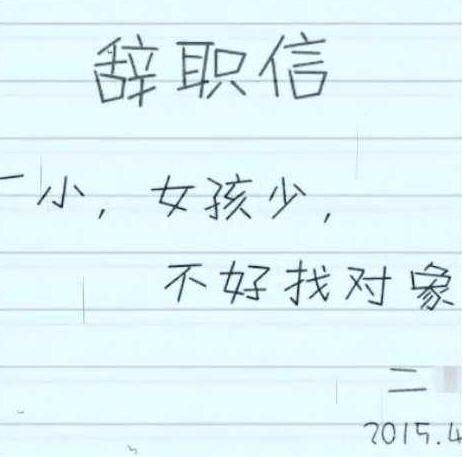 辞职信
厂小，女孩少，
不好找对象
二
2015.4